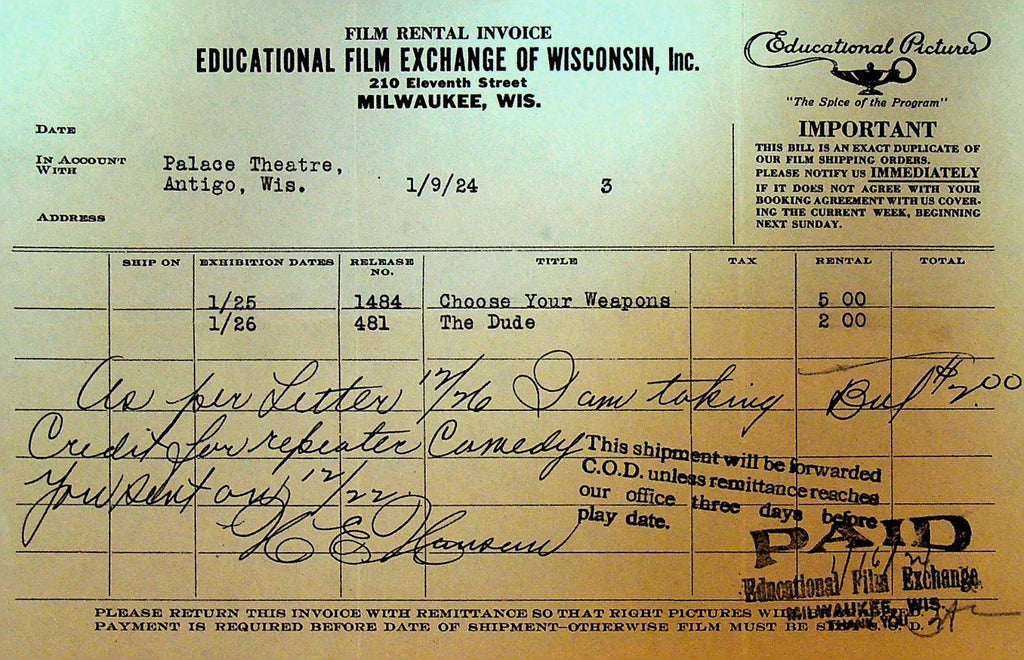 FILM RENTAL INVOICE
EDUCATIONAL FILM EXCHANGE OF WISCONSIN, Inc.
210 Eleventh Street
MILWAUKEE, WIS.
Educational Pictures
"The Spice of the Program"
IMPORTANT
THIS BILL IS AN EXACT DUPLICATE OF
OUR FILM SHIPPING ORDERS.
PLEASE NOTIFY US IMMEDIATELY
IF IT DOES NOT AGREE WITH YOUR
BOOKING AGREEMENT WITH US COVER-
ING THE CURRENT WEEK, BEGINNING
NEXT SUNDAY.
DATE
IN ACCOUNT
WITH
Palace Theatre,
Antigo, Wis. 1/9/24 3
ADDRESS
SHIP ON EXHIBITION DATES RELEASE NO. TITLE TAX RENTAL TOTAL
1/25 1484 Choose Your Weapons 5 00
1/26 481 The Dude 2 00
As per Letter 12/26 I am taking Bul $2.00
Credit for repeater Comedy
You sent on 12/22
H E Hansen
This shipment will be forwarded
C.O.D. unless remittance reaches
our office three days before
play date.
PAID
Educational Film Exchange
MILWAUKEE, WIS.
THANK YOU
PLEASE RETURN THIS INVOICE WITH REMITTANCE SO THAT RIGHT PICTURES WILL BE
PAYMENT IS REQUIRED BEFORE DATE OF SHIPMENT—OTHERWISE FILM MUST BE